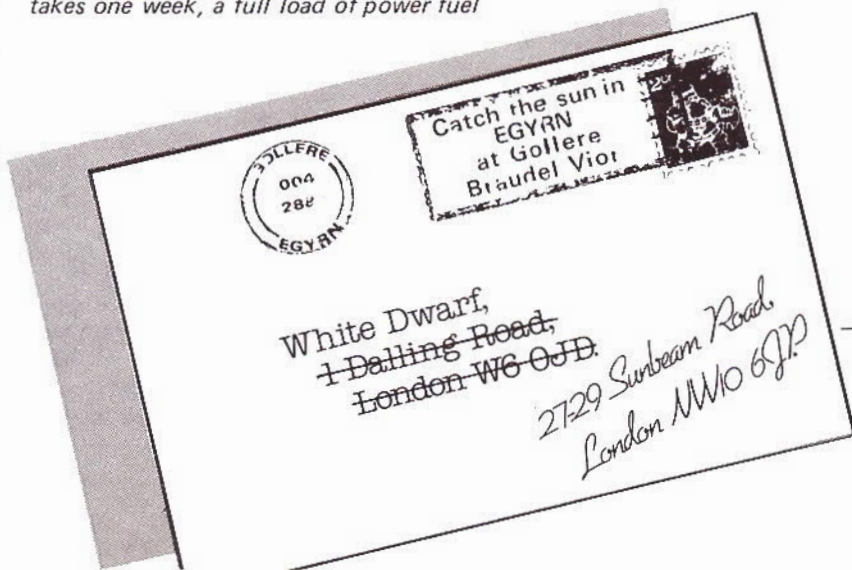 takes one week, a full load of power fuel
GOLLERE
004
288
EGYRN
Catch the sun in
EGYRN
at Gollere
Braudel Viot
White Dwarf,
1 Dalling Road,
London W6 0JD.
27-29 Sunbeam Road,
London NW10 6JP